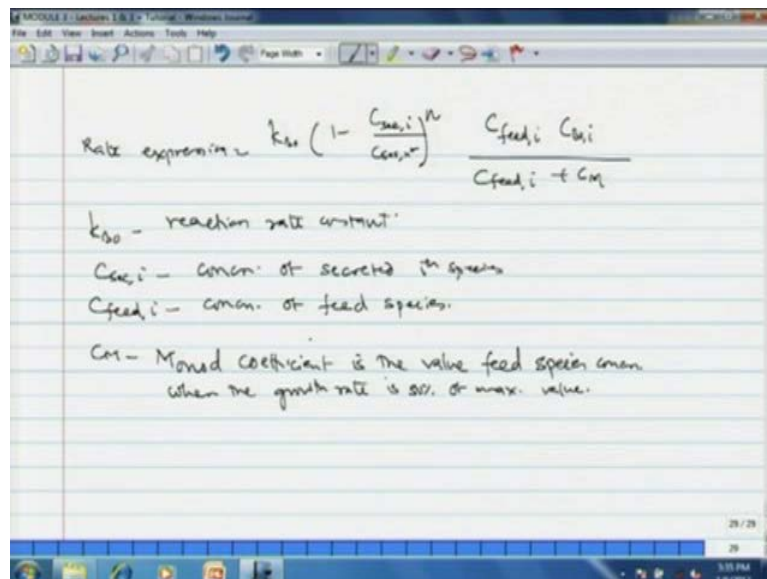 MODULE 3 - Lectures 1 & 2 + Tutorial - Windows Journal
File Edit View Insert Actions Tools Help
Page Width
Rate expression = k_B0 (1 - C_sec,i / C_sec,i*)^n C_feed,i C_B,i / C_feed,i + C_M
k_B0 - reaction rate constant.
C_sec,i - concn. of secreted ith species
C_feed,i - concn. of feed species.
C_M - Monod coefficient is the value feed species concn
when the growth rate is 50% of max. value.
29 / 29
29
3:35 PM